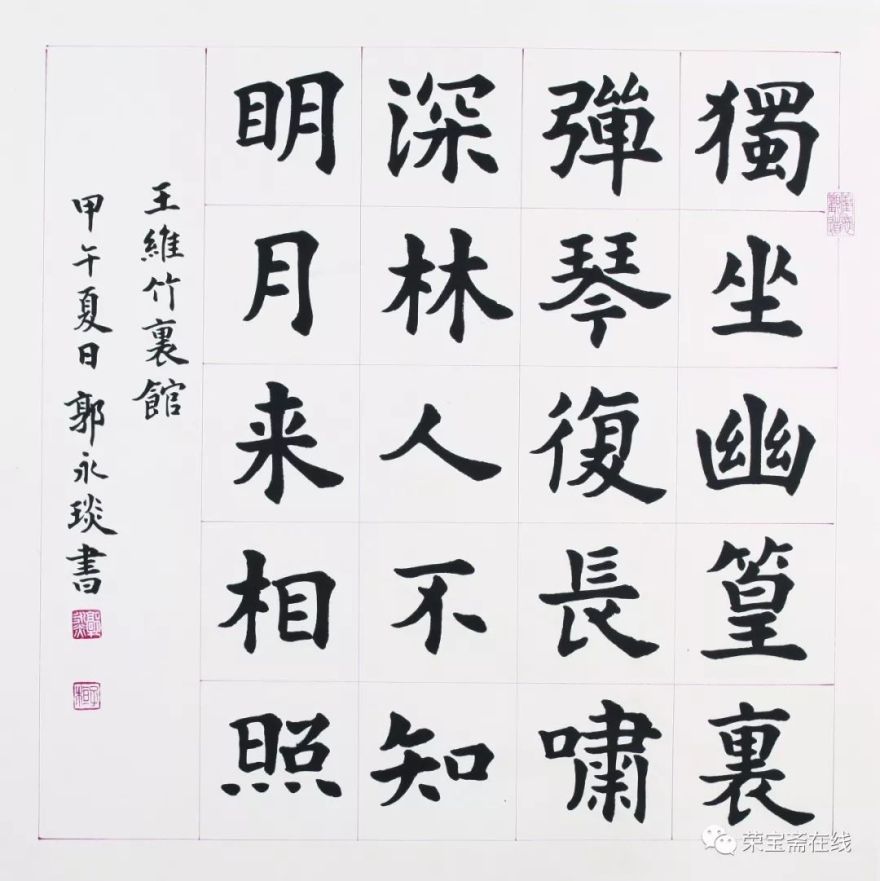 獨坐幽篁裏
彈琴復長嘯
深林人不知
明月来相照
王維竹裏館
甲午夏日郭永琰書
荣宝斋在线